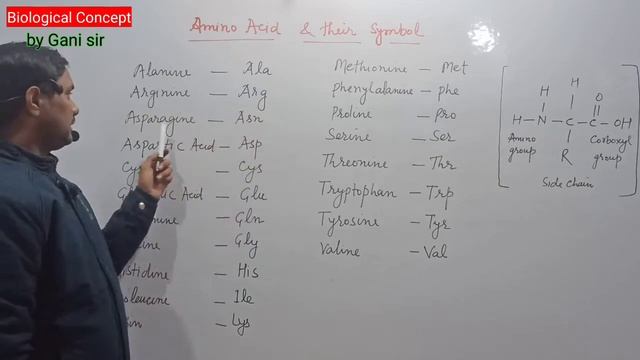 Biological Concept
by Gani sir
Amino Acid & their Symbol
Alanine — Ala
Arginine — Arg
Asparagine — Asn
Aspartic Acid — Asp
— Cys
Acid — Glu
— Gln
— Gly
istidine — His
oleucine — Ile
— Lys
Methionine — Met
Phenylalanine — phe
Proline — Pro
Serine — Ser
Threonine — Thr
Tryptophan — Trp
Tyrosine — Tyr
Valine — Val
H H O
H — N — C — C — OH
Amino group
R
Corboxyl group
Side Chain